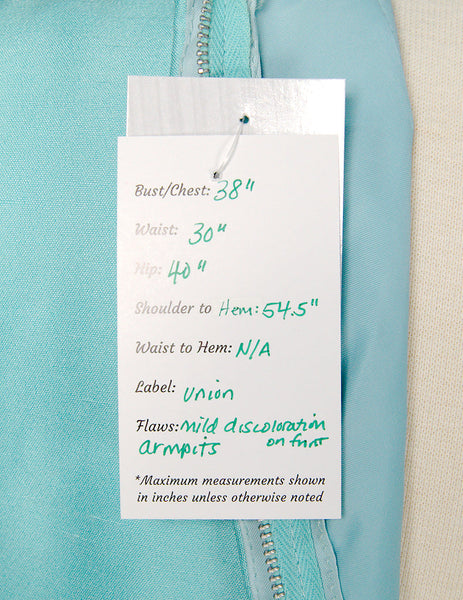 Bust/Chest: 38"
Waist: 30"
Hip: 40"
Shoulder to Hem: 54.5"
Waist to Hem: N/A
Label: Union
Flaws: Mild discoloration
armpits on front
*Maximum measurements shown
in inches unless otherwise noted